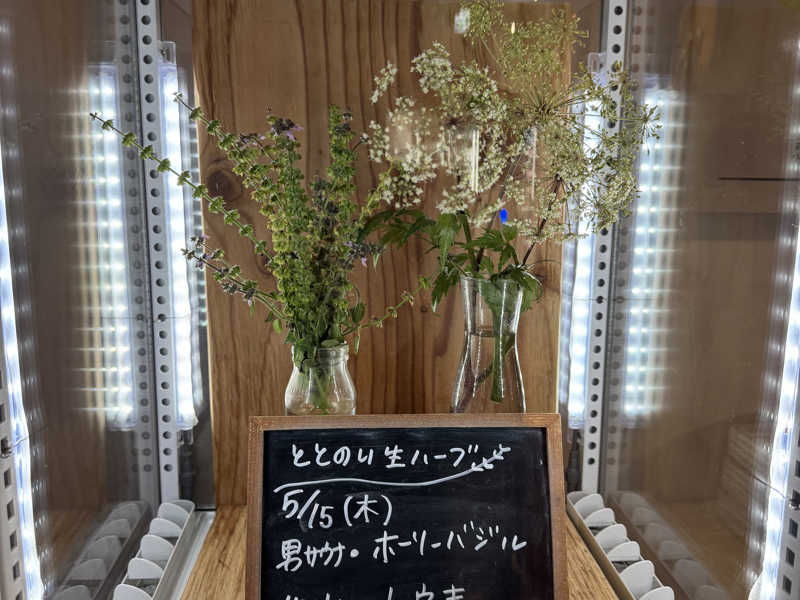 ととのい生ハーブ
5/15(木)
男サウナ・ホーリーバジル